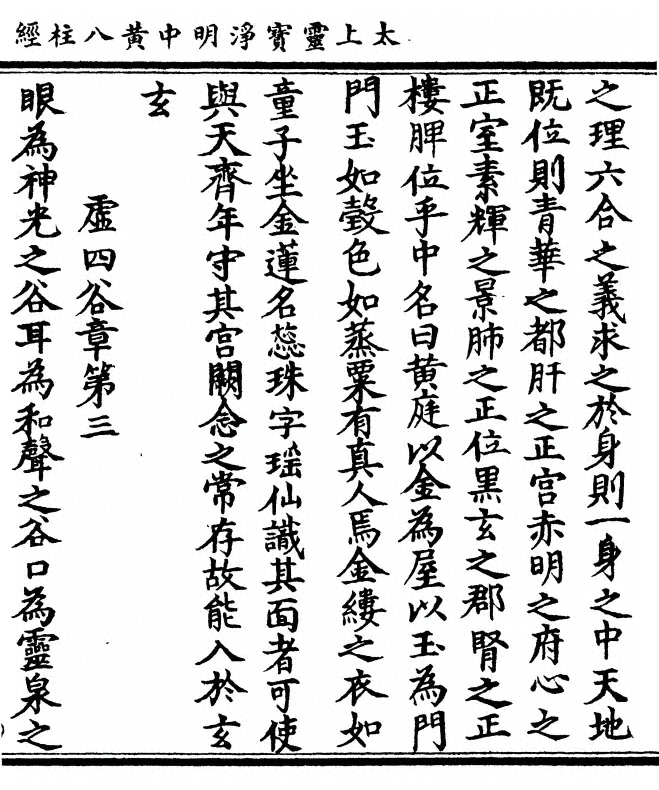 太上靈寶淨明中黃八柱經
之理六合之義求之於身則一身之中天地
既位則青華之都肝之正宮赤明之府心之
正室素輝之景肺之正位黑玄之郡腎之正
樓脾位乎中名曰黄庭以金為屋以玉為門
門玉如瑴色如蒸粟有真人焉金縷之衣如
童子坐金蓮名蕊珠字瑶仙識其面者可使
與天齊年守其宮闕念之常存故能入於玄
玄
虛四谷章第三
眼為神光之谷耳為和聲之谷口為靈泉之